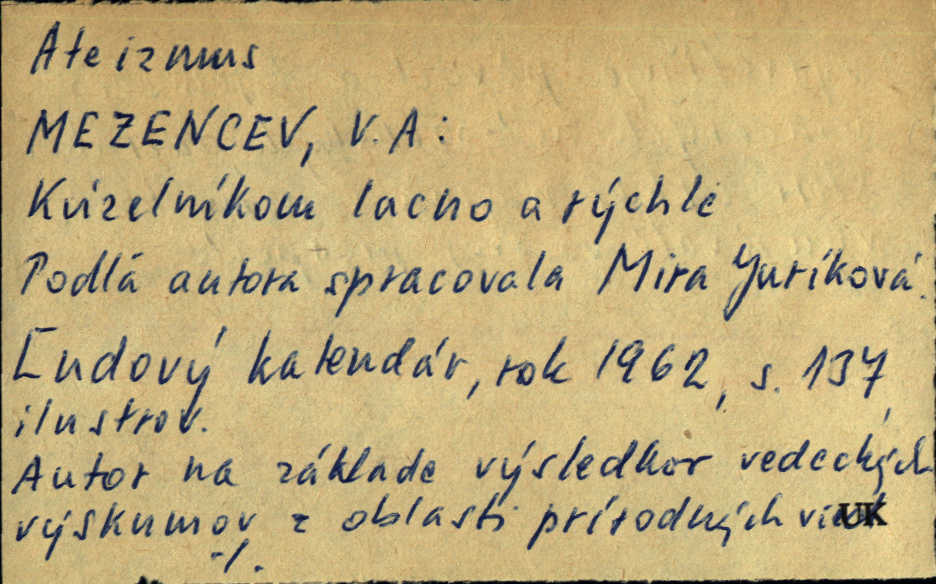 Ateizmus
MEZENCEV, V. A:
Kúzelníkom lacno a rýchle
Podľa autora spracovala Mira Juríková.
Ľudový kalendár, rok 1962, s. 137,
ilustrov.
Autor na základe výsledkov vedeckých
výskumov z oblasti prírodných UK
·/.